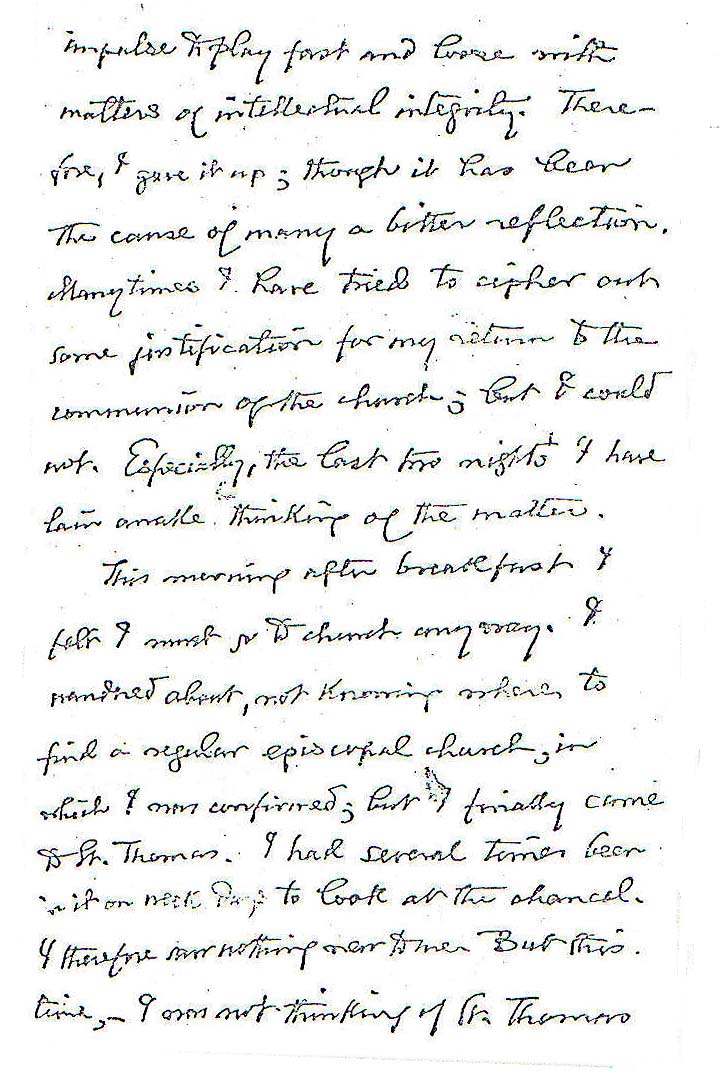 impulse to play fast and loose with
matters of intellectual integrity. There-
fore, I gave it up; though it has been
the cause of many a bitter reflection.
Many times I have tried to cipher out
some justification for my return to the
communion of the church; but I could
not. Especially, the last two nights I have
lain awake thinking of the matter.
This morning after breakfast I
felt I must go to church anyway. I
wandered about, not knowing where to
find a regular episcopal church, in
which I was confirmed; but I finally came
to St. Thomas. I had several times been
in it on week days to look at the chancel.
I therefore saw nothing new to me. But this
time,– I was not thinking of St. Thomas